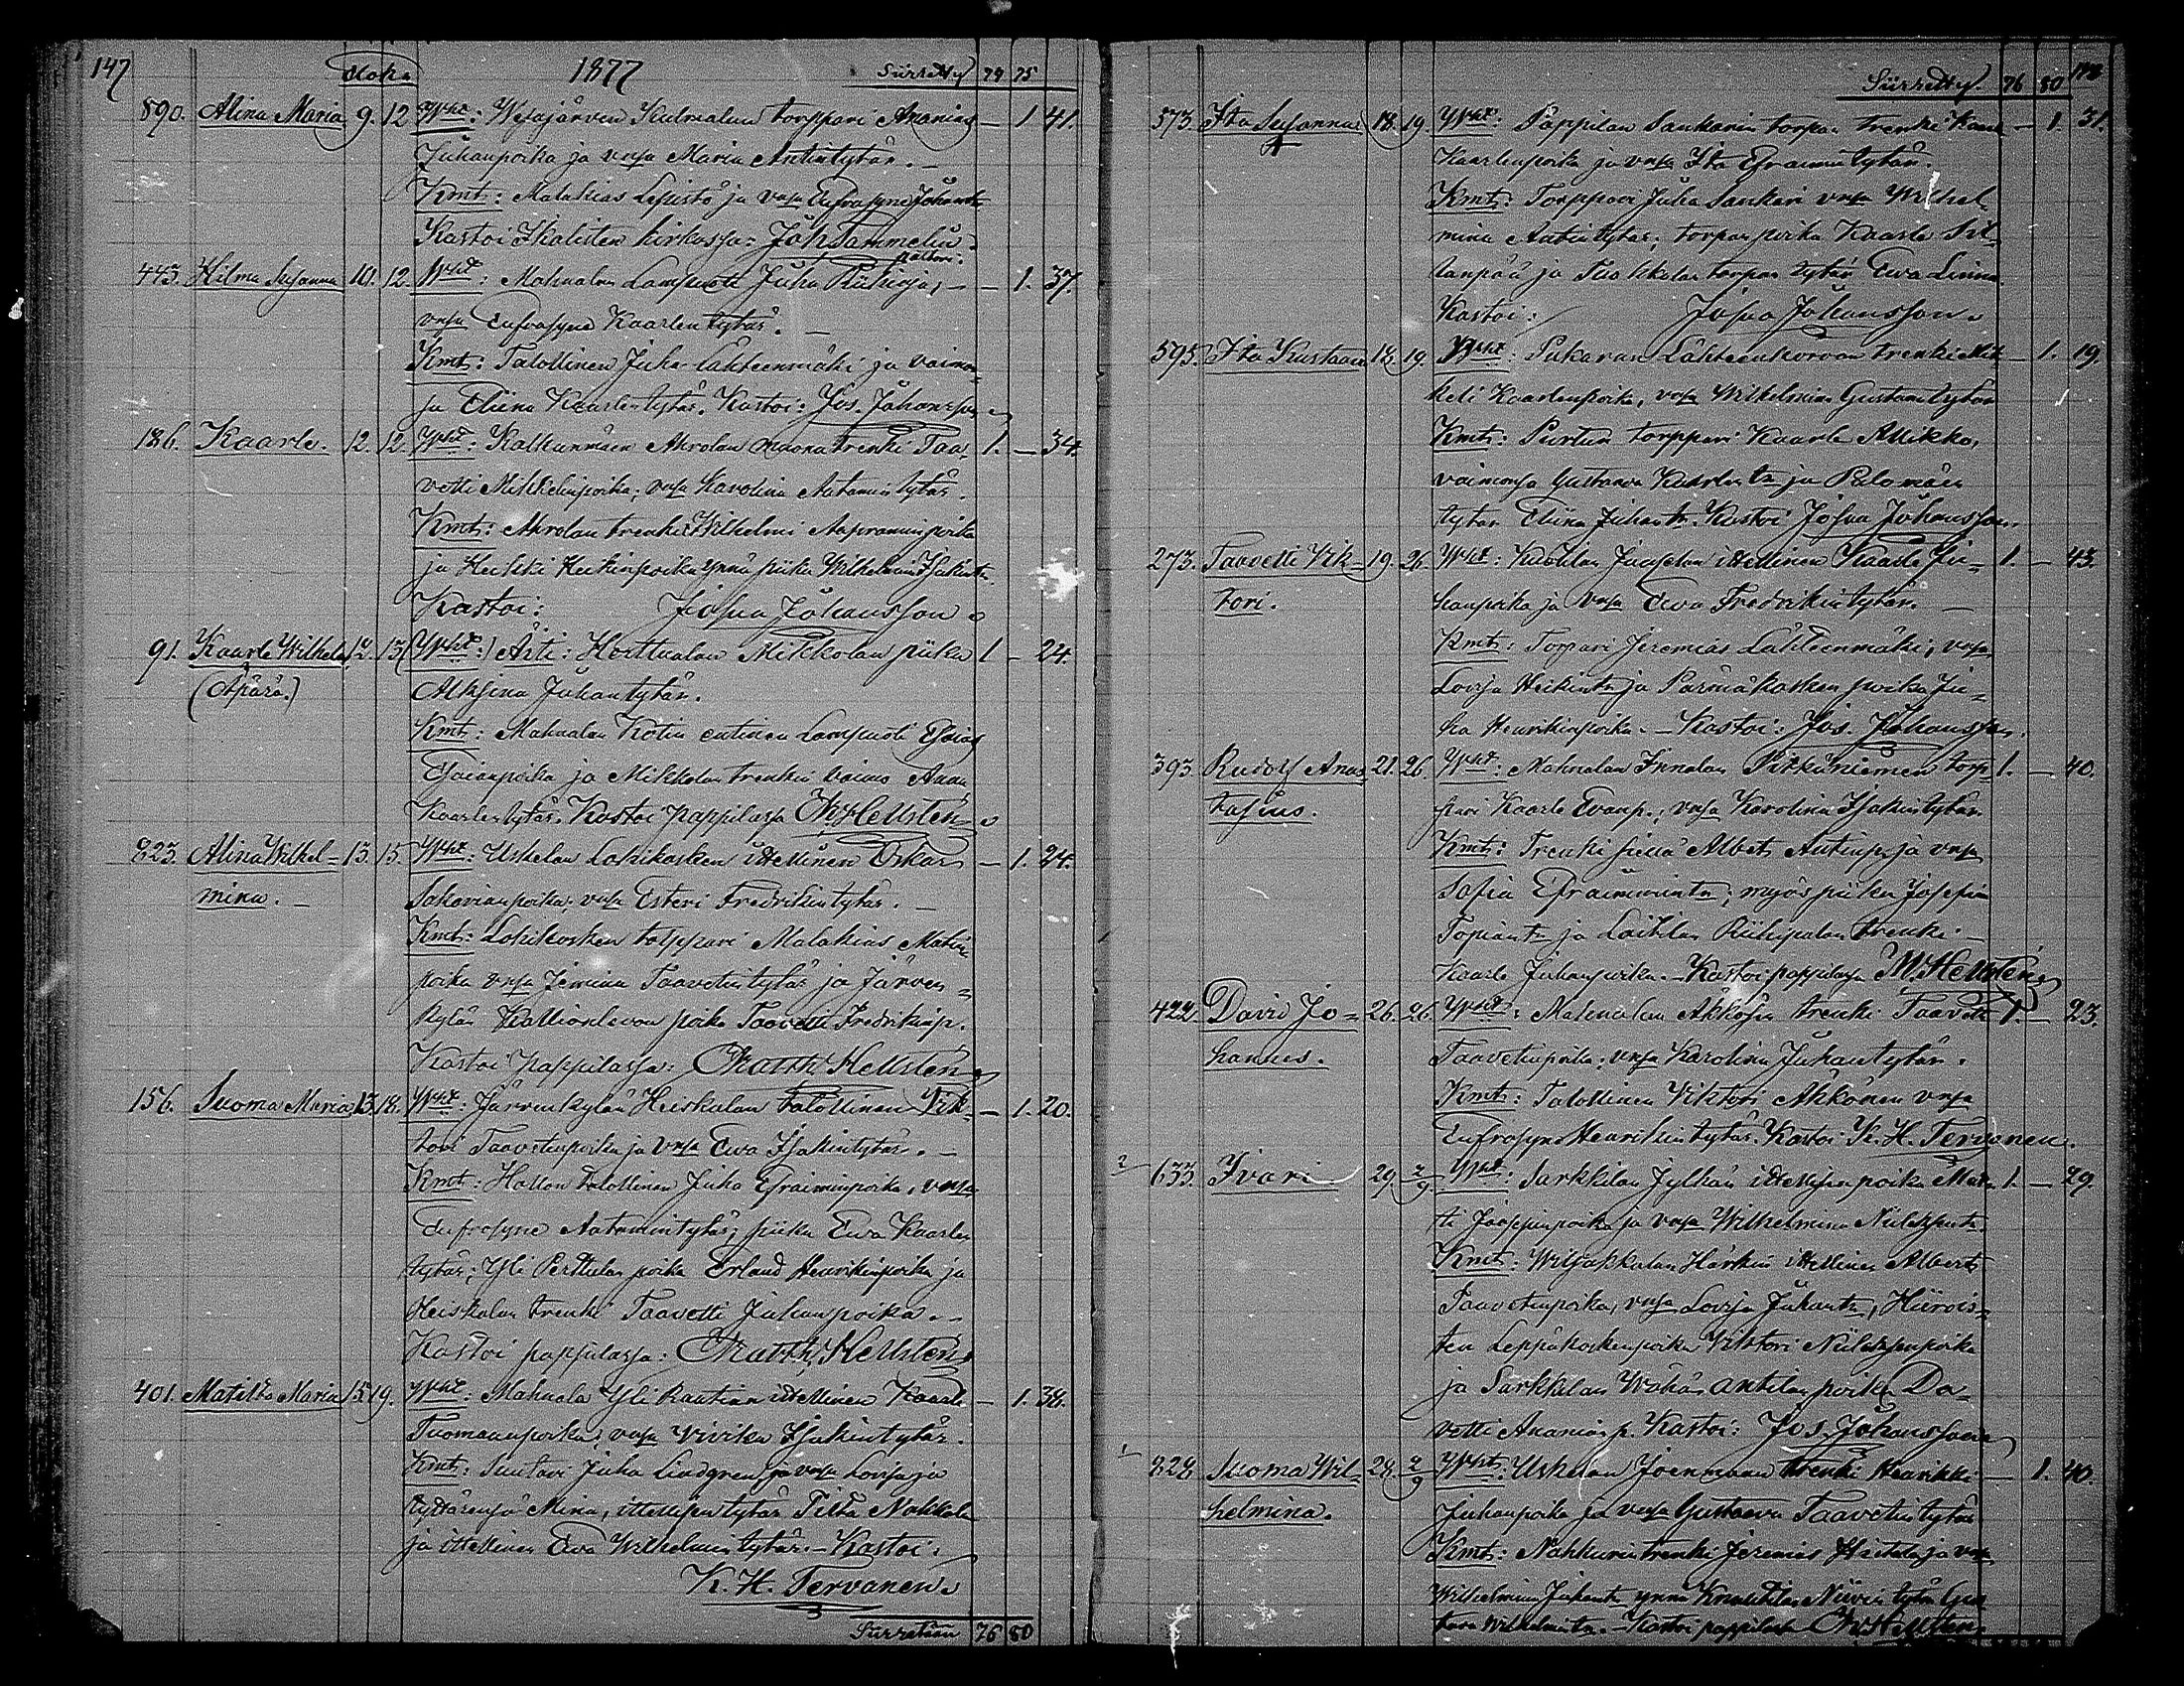 147 Elok. 1877 Siirretty 74 75
890. Alina Maria 9. 12. Whst: Wesajärven Kulmalan torppari Ananias — 1 41.
Juhanpoika ja vmsa Maria Antintytär. —
Kmt: Malakias Lepistö ja vmsa Eufrosyne Juhant.
Kastoi Ikalisten kirkossa: Joh. Sammelin
pastori.
443. Hilma Susanna 10. 12. Whst: Mahnalan Lampuoti Juha Riihioja, — 1. 37.
vmsa Eufrosyne Kaarlentytär. —
Kmt: Talollinen Juha Lähteenmäki ja vaimon-
sa Eliina Kaarlentytär. Kastoi: Jos. Johansson
186. Kaarle. 12. 12. Whst: Kalkunmäen Ahrolan muona trenki Taa- 1. — 34.
vetti Mikkelinpoika; vmsa Karolina Aatamintytär.
Kmt: Ahrolan trenki Wilhelmi Aapraminpoika
ja Heikki Heikinpoika ynnä piika Wilhelmina Isakintr.
Kastoi: Josua Johansson
91. Kaarle Wilhelm 12. 13. (Whst:) Äiti: Horttualan Mikkolan piika 1 — 24.
(Äpärä.) Alksina Juhantytär.
Kmt: Mahnalan Kotin entinen Lampuoti Esaias
Esaianpoika ja Mikkolan trenkin vaimo Anna
Kaarlentytär. Kastoi pappilassa M Hellsten
823. Alina Wilhel- 13. 15. Whst: Uskelan Lohikosken ittellinen Oskar — 1. 24.
mina. — Sakarianpoika; vmsa Esteri Fredrikintytär. —
Kmt: Lohikosken torppari Malakias Matin
poika vmsa Jemina Taavetintytär ja Järven-
kylän Kallionlevon poika Taavetti Fredrikinp.
Kastoi pappilassa: Matth Hellsten
156. Suoma Maria 13. 18. Whst: Järvenkylän Heiskalan talollinen Vik- — 1. 20.
tori Taavetinpoika ja vmsa Ewa Isakintytär. —
Kmt: Hallon talollinen Juha Efraiminpoika, vmsa
Eufrosyne Aatamintytär; piika Ewa Kaarlen
tytär; Yli Perttulan poika Erland Henrikinpoika ja
Heiskalan trenki Taavetti Juhanpoika. —
Kastoi pappilassa: Matth, Hellsten
401. Matilta Maria 15. 19. Whst: Mahnala Yli Rautian ittellinen Kaarle — 1. 38.
Tuomaanpoika; vmsa Vivika Isakintytär.
Kmt: Suutari Juha Lindgren ja vmsa Lovisa ja
tyttärensä Mina, ittellisen tytär Tilta Nokkala
ja ittellinen Ewa Wilhelmintytär. — Kastoi:
K. H. Tervanen.
Siirretään 76 80
Siirretty. 76 80 148
573. Ita Susanna 18. 19. Whst: Pappilan Sankarin torpan trenki Kaar — 1. 31.
Kaarlenpoika ja vmsa Ita Efraimintytär.
Kmt: Torppari Juha Sankari vmsa Wilhel-
mina Antintytär; torpan poika Kaarle Sil-
lanpää ja torpan tytär Ewa Linna
Kastoi: Josua Johansson.
595. Ita Kustaava 18. 19. Whst: Pukaran Lähteenkorvan trenki Mik — 1. 19.
keli Kaarlenpoika, vmsa Wilhelmina Gustavintytär
Kmt: Purtun torppari Kaarle Mikko,
vaimonsa Gustaava Kaarlentr ja Palomäen
tytär Eliina Juhantr. Kastoi Josua Johansson.
273. Taavetti Vik- 19. 26. Whst: ittellinen Kaarle Ju- 1. — 43.
tori. hanpoika ja vmsa Ewa Fredrikintytär. —
Kmt: Torpari Jeremias Lähteenmäki, vmsa
Lovisa Heikintr ja Parmakosken poika Ju-
ha Henrikinpoika. — Kastoi: Jos. Johansson.
393. Rudolf Anas 21. 26. Whst: Mahnalan Innalan Pikkuniemen torp 1. — 40.
tasius. pari Kaarle Evanp.; vmsa Karolina Isakintytär
Kmt: Trenki siellä Albert Antinp. ja vmsa
Sofia Efraimintr; myös piika Josefina
Topiantr ja Laitilan Riihipalan trenki —
Kaarle Juhanpoika. — Kastoi pappilassa M. Hellstén
422. David Jo- 26. 26. Whst: Mahnalan Äkkösen trenki Taavetti 1. — 23.
hannes. Taavetinpoika; vmsa Karolina Juhantytär.
Kmt: Talollinen Viktori Äkkönen vmsa
Eufrosyne Henrikintytär. Kastoi: K. H. Tervanen.
2 633. Ivari. 29. 2/9. Whst: Sarkkilan Jylhän ittellisen poika Mar 1. — 29.
ti Jooseppinpoika ja vmsa Wilhelmina Niilaksentr.
Kmt: Wiljakkalan Härkin ittellinen Albert
Taavetinpoika, vmsa Lovisa Juhantr, Hiirois-
ten Leppäkosken poika Viktori Niilaksenpoika
ja Sarkkilan Wähän Antilan poika Da-
vetti Ananianp. Kastoi: Jos. Johansson
1 828. Suoma Wil- 28. 2/9 Whst: Uskelan Joenmaan trenki Henrikki — 1. 40.
helmina. Juhanpoika ja vmsa Gustaava Taavetintytär
Kmt: Nahkurin trenki Jeremias Hietala ja vmsa
Wilhelmina Juhantr ynnä Niivin tytär Gus
tava Wilhelmintr. — Kastoi pappilassa M Hellsten.